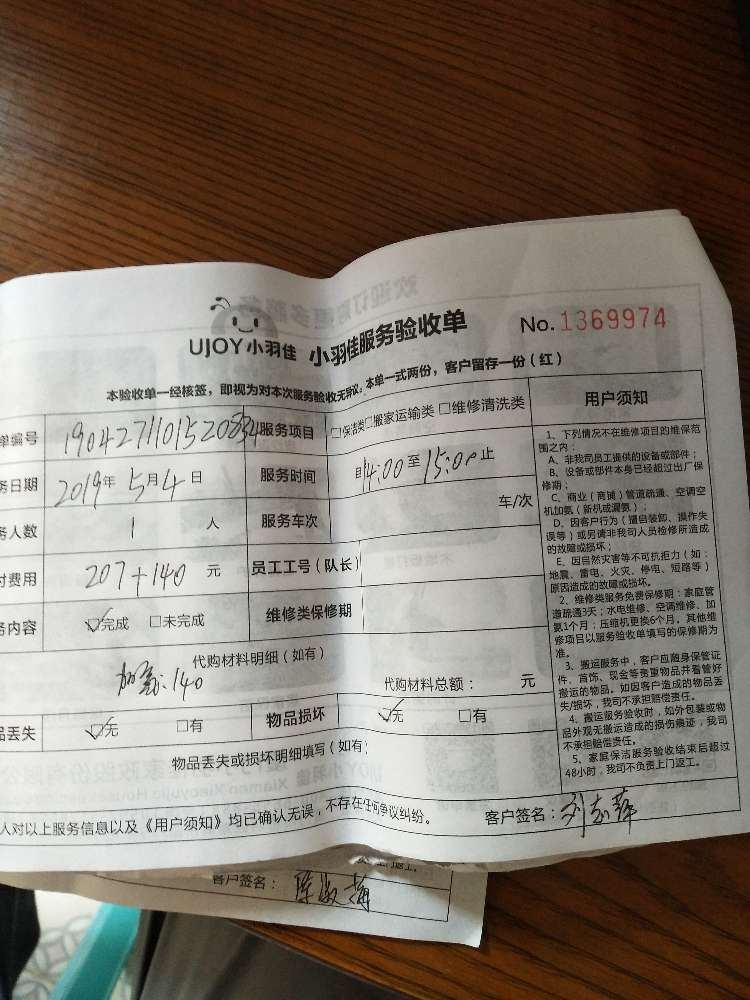 UJOY小羽佳 小羽佳服务验收单 No.1369974
本验收单一经核签，即视为对本次服务验收无异议。本单一式两份，客户留存一份（红）
单编号 服务项目 □保洁类□搬家运输类 □维修清洗类
务日期 2019年5月4日 服务时间 自14:00至15:00止
务人数 1 人 服务车次 车/次
付费用 207+140 元 员工工号（队长）
务内容 ☑完成 □未完成 维修类保修期
代购材料明细（如有）
140 代购材料总额： 元
品丢失 ☑无 □有 物品损坏 ☑无 □有
物品丢失或损坏明细填写（如有）
人对以上服务信息以及《用户须知》均已确认无误，不存在任何争议纠纷。 客户签名：
用户须知
1、下列情况不在维修项目的维保范
围之内：
A、非我司员工提供的设备或部件；
B、设备或部件本身已经超过出厂保
修期；
C、商业（商铺）管道疏通、空调空
机加氨（新机或漏氨）；
D、因客户行为（擅自装卸、操作失
误等）或另请非我司人员检修所造成
的故障或损坏；
E、因自然灾害等不可抗拒力（如：
地震、雷电、火灾、停电、短路等）
原因造成的故障或损坏。
2、维修类服务免费保修期：家庭管
道疏通3天；水电维修、空调维修、加
氨1个月；压缩机更换6个月。其他维
修项目以服务验收单填写的保修期为
准。
3、搬运服务中，客户应随身保管证
件、首饰、现金等贵重物品并看管好
搬运的物品。如因客户造成的物品丢
失/损坏，我司不承担赔偿责任。
4、搬运服务验收时，如外包装或物
品外观无搬运造成的损伤痕迹，我司
不承担赔偿责任。
5、家庭保洁服务验收结束后超过
48小时，我司不负责上门返工。
客户签名：